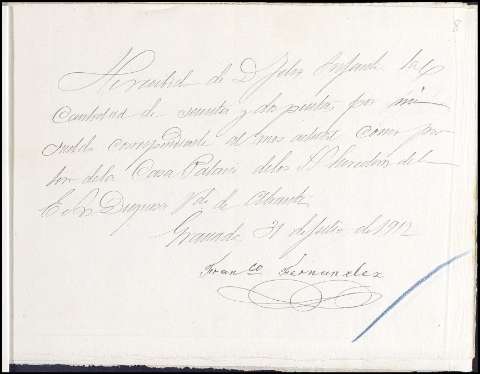 He recibido de D. Felix Infante la
Cantidad de sesenta y dos pesetas por mi
sueldo correspondiente al mes actual como por
tero de la Casa Palacio de los Herederos del
E. Sr. Duque V. de Abrantes
Granada 31 de Julio de 1912
Fran.co Fernandez